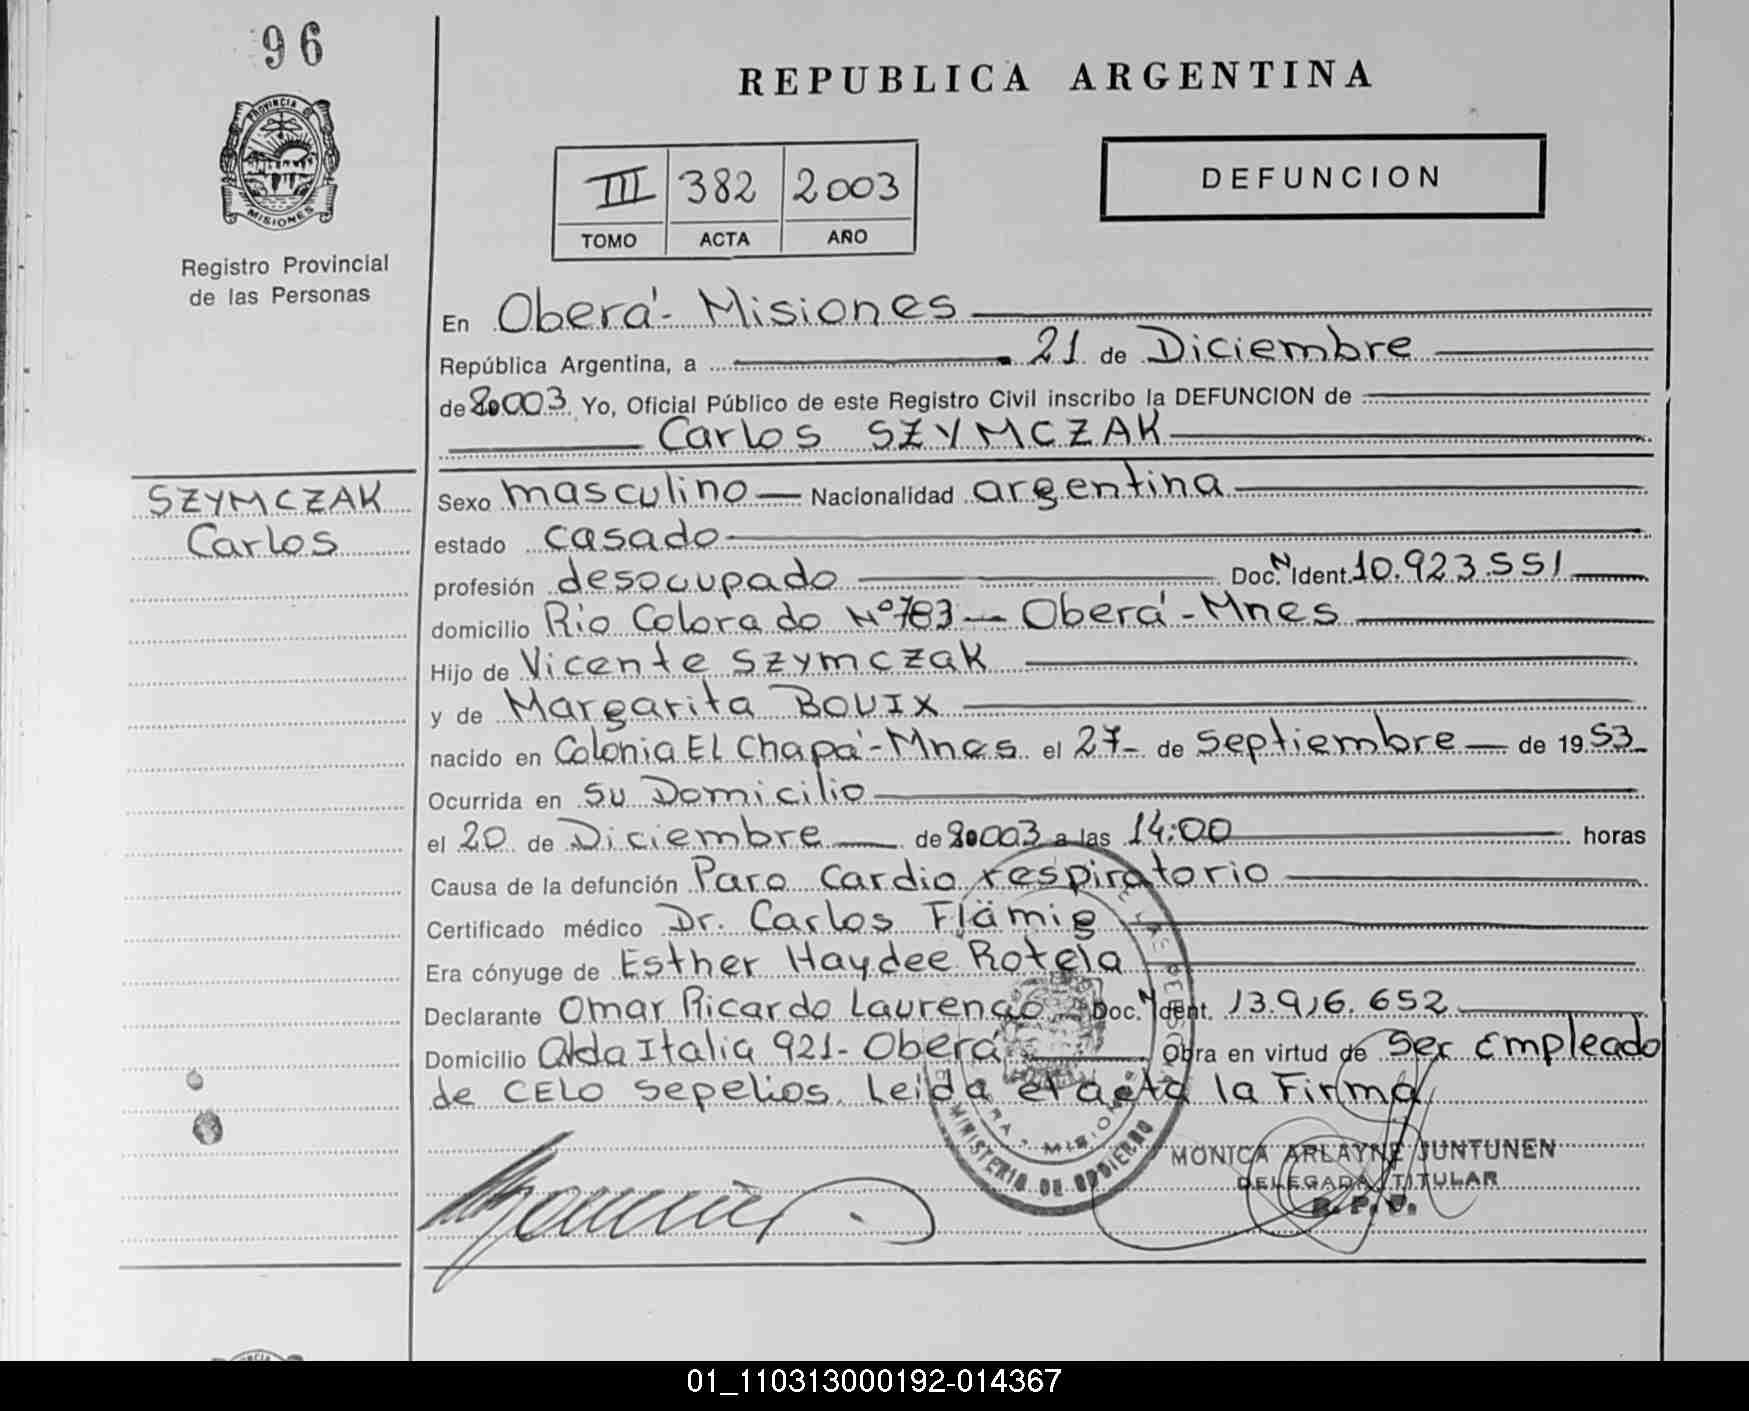 96
PROVINCIA DE
MISIONES
Registro Provincial
de las Personas
REPUBLICA ARGENTINA
III 382 2003
TOMO ACTA AÑO
DEFUNCION
En Oberá - Misiones
República Argentina, a 21 de Diciembre
de 2003 Yo, Oficial Público de este Registro Civil inscribo la DEFUNCION de
Carlos SZYMCZAK
SZYMCZAK
Carlos
Sexo masculino Nacionalidad argentina
estado casado
profesión desocupado Doc. N Ident. 10.923.551
domicilio Rio Colorado Nº 783 - Oberá - Mnes
Hijo de Vicente Szymczak
y de Margarita BOUIX
nacido en Colonia El Chapá - Mnes. el 27 - de Septiembre de 1953
Ocurrida en su Domicilio
el 20 de Diciembre de 2003 a las 14:00 horas
Causa de la defunción Paro Cardio respiratorio
Certificado médico Dr. Carlos Flämig
Era cónyuge de Esther Haydee Rotela
Declarante Omar Ricardo Laurenco Doc. N Ident. 13.916.652
Domicilio Avda Italia 921 - Oberá Obra en virtud de Ser Empleado
de CELO sepelios. Leída el acta la Firma
MINISTERIO DE GOBIERNO
MISIONES
MONICA ARLAYNE JUNTUNEN
DELEGADA TITULAR
R. P. P.
01_110313000192-014367